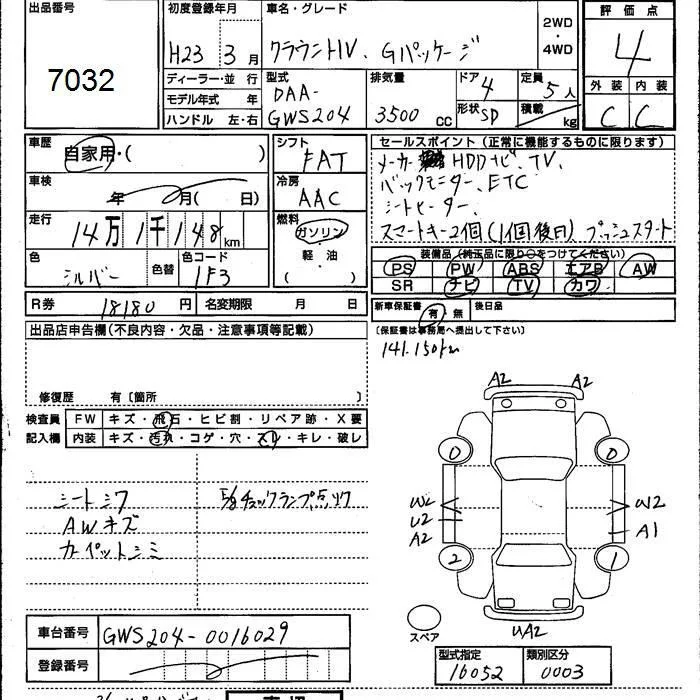 出品番号
7032
初度登録年月
H23 3 月
車名・グレード
クラウンHV、Gパッケージ
2WD
・
4WD
評価点
4
外装 内装
C C
ディーラー・並行
モデル年式 年
ハンドル 左・右
型式
DAA-
GWS204
排気量
3500 CC
ドア 4
形状 SD
定員
5人
積載
kg
車歴
自家用・( )
車検
年 月( 日)
走行
14万1千148km
色
シルバー
色替
色コード
1F3
シフト
FAT
冷房
AAC
燃料
ガソリン
軽・油
( )
セールスポイント(正常に機能するものに限ります)
メーカー HDDナビ、TV、
バックモニター、ETC
シートヒーター、
スマートキー2個(1個後日) プッシュスタート
装備品(純正品に限り○をつけてください)
PS PW ABS エアB AW
SR ナビ TV カワ
R券 18180 円 名変期限 月 日
新車保証書 有・無 後日品
(保証書は事務局へ提出して下さい)
141.150km
出品店申告欄(不良内容・欠品・注意事項等記載)
修復歴 有〔箇所 〕
検査員
記入欄
FW キズ・飛石・ヒビ割・リペア跡・X要
内装 キズ・汚れ・コゲ・穴・スレ・キレ・破レ
シートシワ
AWキズ
カーペットシミ
5/8チェックランプ点灯
A2 A2
0 0
W2 W2
U2
A2 A1
2 1
スペア
UA2
車台番号 GWS204-0016029
登録番号
型式指定 類別区分
16052 0003